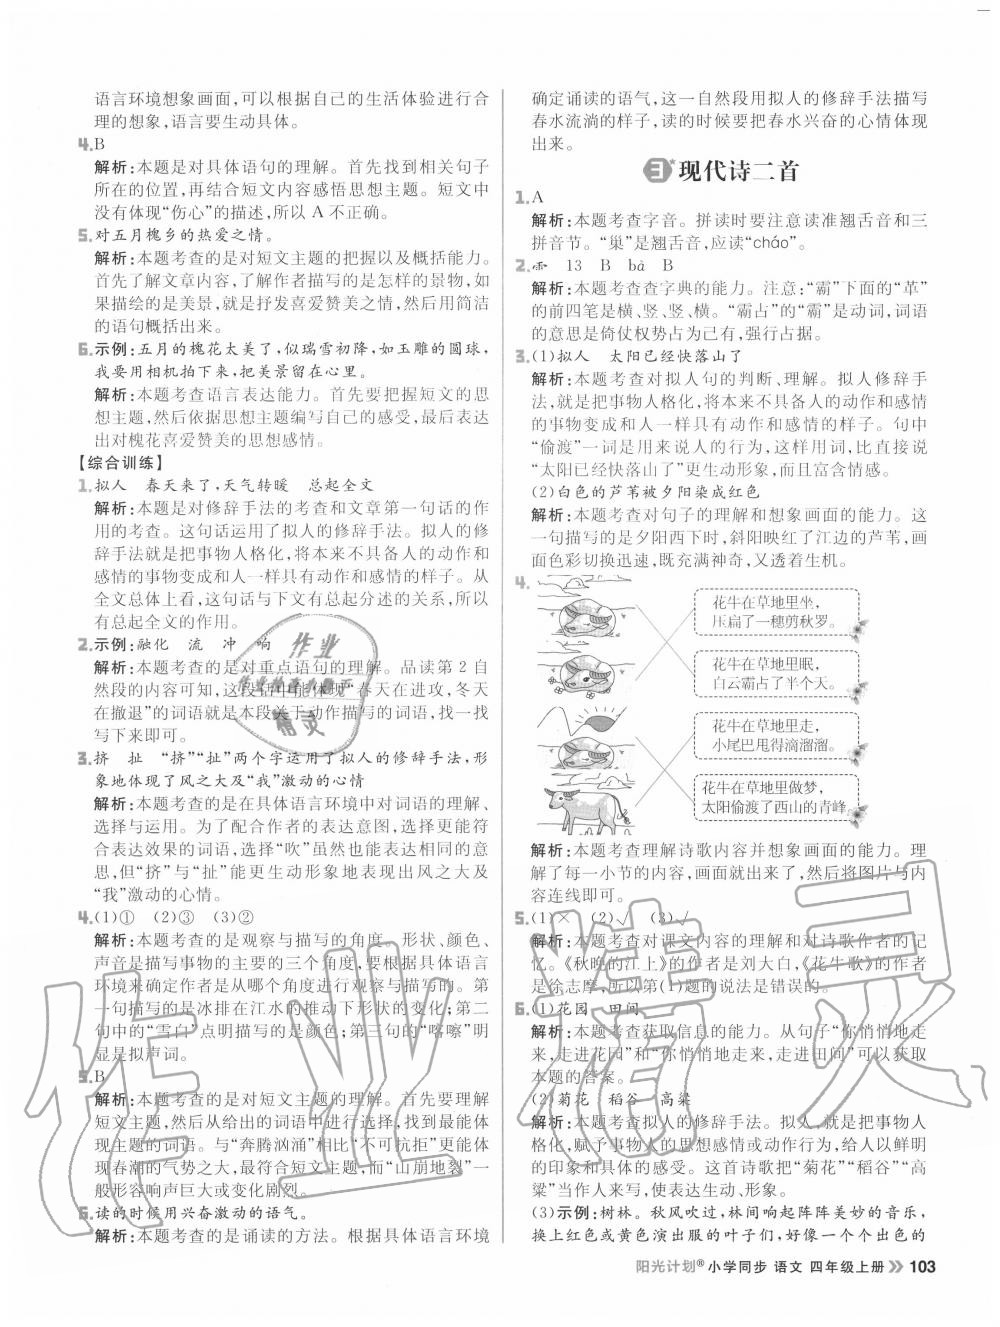 语言环境想象画面,可以根据自己的生活体验进行合
理的想象,语言要生动具体。
4. B
解析:本题是对具体语句的理解。首先找到相关句子
所在的位置,再结合短文内容感悟思想主题。短文中
没有体现“伤心”的描述,所以 A 不正确。
5. 对五月槐乡的热爱之情。
解析:本题考查的是对短文主题的把握以及概括能力。
首先了解文章内容,了解作者描写的是怎样的景物,如
果描绘的是美景,就是抒发喜爱赞美之情,然后用简洁
的语句概括出来。
6. 示例:五月的槐花太美了,似瑞雪初降,如玉雕的圆球,
我要用相机拍下来,把美景留在心里。
解析:本题考查语言表达能力。首先要把握短文的思
想主题,然后依据思想主题编写自己的感受,最后表达
出对槐花喜爱赞美的思想感情。
【综合训练】
1. 拟人 春天来了,天气转暖 总起全文
解析:本题是对修辞手法的考查和文章第一句话的作
用的考查。这句话运用了拟人的修辞手法。拟人的修
辞手法就是把事物人格化,将本来不具备人的动作和
感情的事物变成和人一样具有动作和感情的样子。从
全文总体上看,这句话与下文有总起分述的关系,所以
有总起全文的作用。
2. 示例:融化 流 冲 响
解析:本题考查的是对重点语句的理解。品读第 2 自
然段的内容可知,这段话中能体现“春天在进攻,冬天
在撤退”的词语就是本段关于动作描写的词语,找一找
写下来即可。
3. 挤 扯 “挤”“扯”两个字运用了拟人的修辞手法,形
象地体现了风之大及“我”激动的心情
解析:本题考查的是在具体语言环境中对词语的理解、
选择与运用。为了配合作者的表达意图,选择更能符合
表达效果的词语,选择“吹”虽然也能表达同样的意
思,但“挤”与“扯”能更生动形象地表现出风之大及
“我”激动的心情。
4. (1)① (2)③ (3)②
解析:本题考查的是观察与描写的角度。形状、颜色、
声音是描写事物的主要的三个角度,要根据具体语言
环境来确定作者是从哪个角度进行观察与描写的。第
一句描写的是冰排在江水的推动下形状的变化;第二
句中的“雪白”点明描写的是颜色;第三句的“喀嚓”明
显是拟声词。
5. B
解析:本题考查的是对短文主题的理解。首先要理解
短文主题,然后从给出的词语中进行选择,找到最能体
现主题的词语。与“奔腾汹涌”相比,“不可抗拒”更能体
现春潮的气势之大,最符合短文主题,而“山崩地裂”一
般形容响声巨大或变化剧烈。
6. 读的时候用兴奋激动的语气。
解析:本题考查的是诵读的方法。根据具体语言环境
确定诵读的语气,这一自然段用拟人的修辞手法描写
春水流淌的样子,读的时候要把春水兴奋的心情体现
出来。
3* 现代诗二首
1. A
解析:本题考查字音。拼读时要注意读准翘舌音和三
拼音节。“巢”是翘舌音,应读“cháo”。
2. 雨 13 B bà B
解析:本题考查查字典的能力。注意:“霸”下面的“革”
的前四笔是横、竖、竖、横。“霸占”的“霸”是动词,词语
的意思是倚仗权势占为己有,强行占据。
3. (1)拟人 太阳已经快落山了
解析:本题考查对拟人句的判断、理解。拟人修辞手
法,就是把事物人格化,将本来不具备人的动作和感情
的事物变成和人一样具有动作和感情的样子。句中
“偷渡”一词是用来说人的行为,这样用词,比直接说
“太阳已经快落山了”更生动形象,而且富含感情。
(2)白色的芦苇被夕阳染成红色
解析:本题考查对句子的理解和想象画面的能力。这
一句描写的是夕阳西下时,斜阳映红了江边的芦苇,画
面色彩切换迅速,既充满神奇,又透着生机。
4.
花牛在草地里坐,
压扁了一穗剪秋罗。
花牛在草地里眠,
白云霸占了半个天。
花牛在草地里走,
小尾巴甩得滴溜溜。
花牛在草地里做梦,
太阳偷渡了西山的青峰。
解析:本题考查理解诗歌内容并想象画面的能力。理
解了每一小节的内容,画面就出来了,然后将图片与内
容连线即可。
5. (1)× (2)√ (3)√
解析:本题考查对课文内容的理解和对诗歌作者的记
忆。《秋晚的江上》的作者是刘大白,《花牛歌》的作者
是徐志摩,所以第(1)题的说法是错误的。
6. (1)花园 田间
解析:本题考查获取信息的能力。从句子“你悄悄地走
来,走进花园”和“你悄悄地走来,走进田间”可以获取
本题的答案。
(2)菊花 稻谷 高粱
解析:本题考查拟人的修辞手法。拟人,就是把事物人
格化,赋予事物人的思想感情或动作行为,给人以鲜明
的印象和具体的感受。这首诗歌把“菊花”“稻谷”“高
粱”当作人来写,使表达生动、形象。
(3)示例:树林。秋风吹过,林间响起阵阵美妙的音乐,
换上红色或黄色演出服的叶子们,舞动出一个个出色的
作业
精灵
作业精灵
阳光计划® 小学同步 语文 四年级上册 103